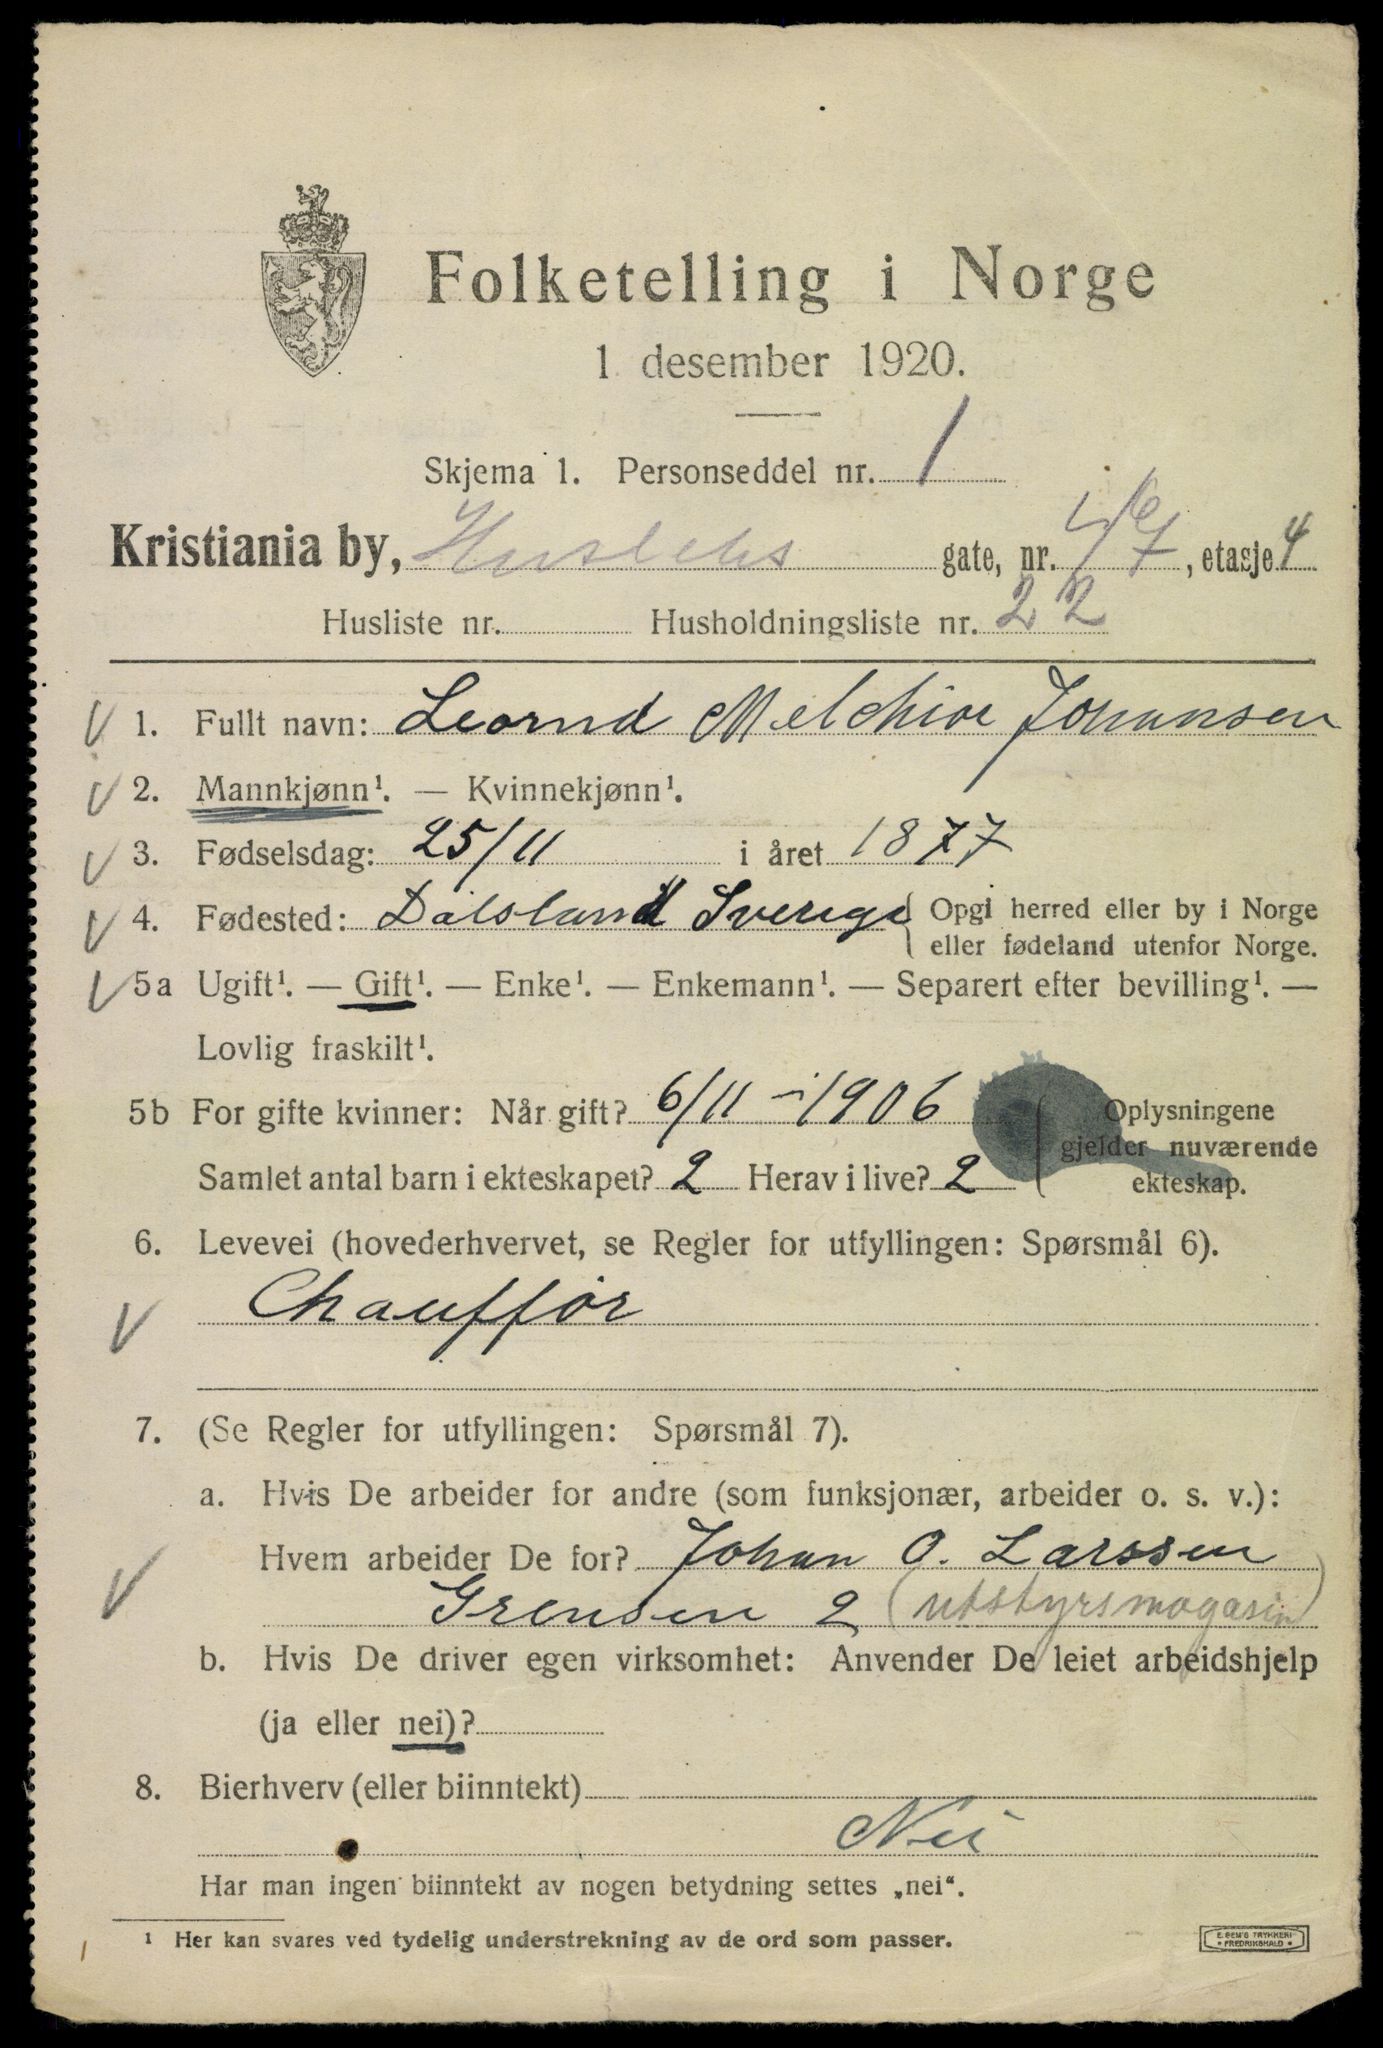 Folketelling i Norge
1 desember 1920.
Skjema 1. Personseddel nr. 1
Kristiania by, gate, nr. , etasje 4
Husliste nr. Husholdningsliste nr. 22
V 1. Fullt navn: Leornd Melchior Johansen
V 2. Mannkjønn¹. — Kvinnekjønn¹.
V 3. Fødselsdag: 25/11 i året 1877
V 4. Fødested: Dalsland Sverige { Opgi herred eller by i Norge
eller fødeland utenfor Norge.
V 5a Ugift¹. — Gift¹. — Enke¹. — Enkemann¹. — Separert efter bevilling¹. —
Lovlig fraskilt¹.
5b For gifte kvinner: Når gift? 6/11 - 1906 ( Oplysningene
gjelder nuværende
Samlet antal barn i ekteskapet? 2 Herav i live? 2 ekteskap.
6. Levevei (hovederhvervet, se Regler for utfyllingen: Spørsmål 6).
V Chauffør
7. (Se Regler for utfyllingen: Spørsmål 7).
a. Hvis De arbeider for andre (som funksjonær, arbeider o. s. v.):
Hvem arbeider De for? Johan O. Larssen
V Grensen 2 (utstyrsmagasin)
b. Hvis De driver egen virksomhet: Anvender De leiet arbeidshjelp
(ja eller nei)?
8. Bierhverv (eller biinntekt)
Nei
Har man ingen biinntekt av nogen betydning settes „nei“.
¹ Her kan svares ved tydelig understrekning av de ord som passer.
E. SEM'S TRYKKERI
• FREDRIKSHALD •